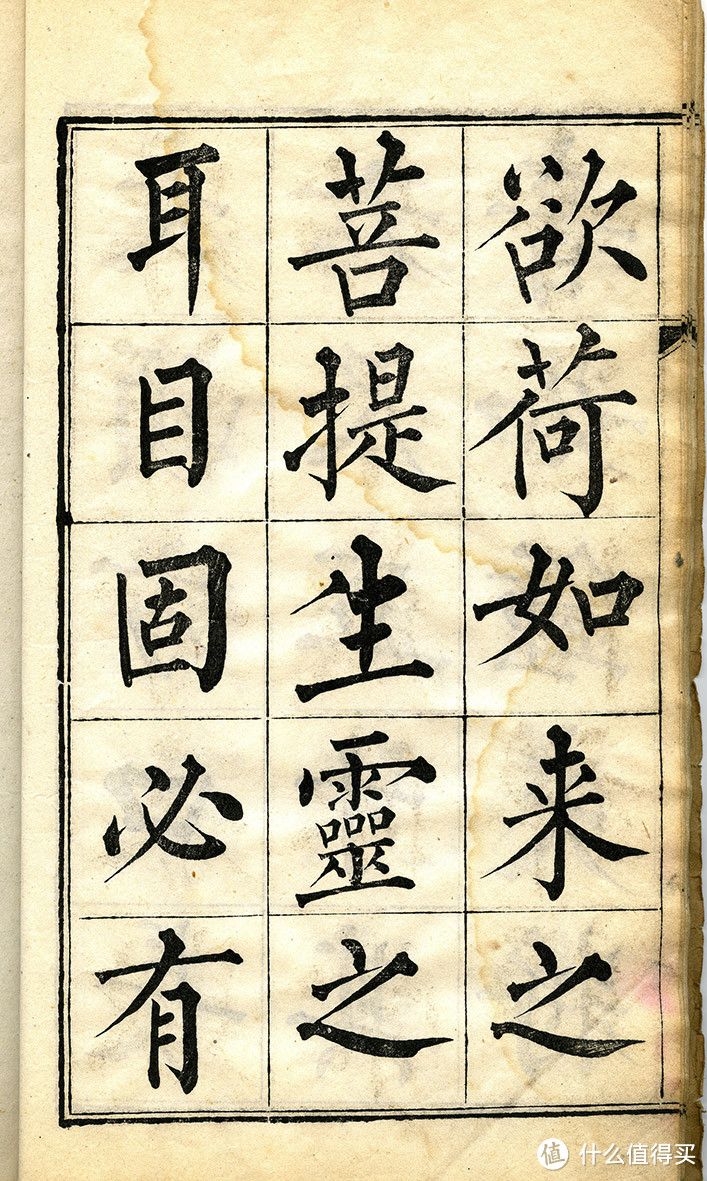 欲荷如来之
菩提生靈之
耳目固必有
值 什么值得买